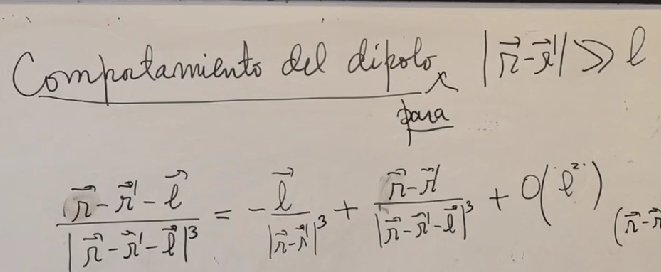 Comportamiento del dipolo para |r⃗-r⃗'| ≫ l
(r⃗-r⃗'-l⃗)/|r⃗-r⃗'-l⃗|³ = -l⃗/|r⃗-r⃗'|³ + (r⃗-r⃗')/|r⃗-r⃗'-l⃗|³ + O(l²)